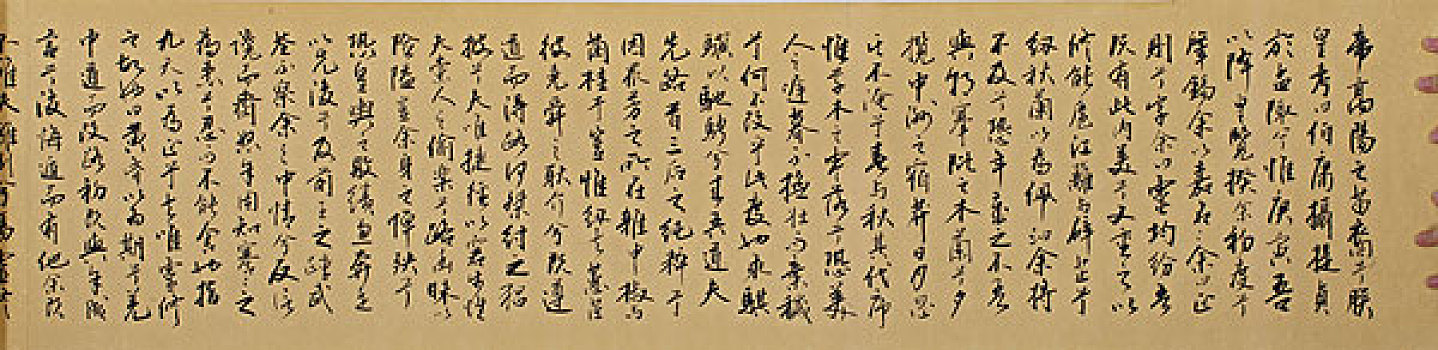 帝高陽之苗裔兮朕
皇考曰伯庸攝提貞
於孟陬兮惟庚寅吾
以降皇覽揆余初度兮
肇錫余以嘉名名余曰正
則兮字余曰靈均紛吾
既有此內美兮又重之以
修能扈江離與辟芷兮
紉秋蘭以為佩汩余將
不及兮恐年歲之不吾
與朝搴阰之木蘭兮夕
攬中洲之宿莽日月忽
其不淹兮春與秋其代序
惟草木之零落兮恐美
人之遲暮不撫壯而棄穢
兮何不改乎此度也乘騏
驥以馳騁兮來吾道夫
先路昔三后之純粹兮
固眾芳之所在雜申椒與
菌桂兮豈惟紉夫蕙茝
彼堯舜之耿介兮既遵
道而得路何桀紂之猖
披兮夫唯捷徑以窘步惟
夫黨人之偷樂兮路幽昧以
險隘豈余身之憚殃兮
恐皇輿之敗績忽奔走
以先後兮及前王之踵武
荃不察余之中情兮反信
讒而齌怒余固知謇謇之
為患兮忍而不能舍也指
九天以為正兮夫唯靈修
之故也曰黃昏以為期兮羌
中道而改路初既與余成
言兮後悔遁而有他余既
不難夫離別兮傷靈